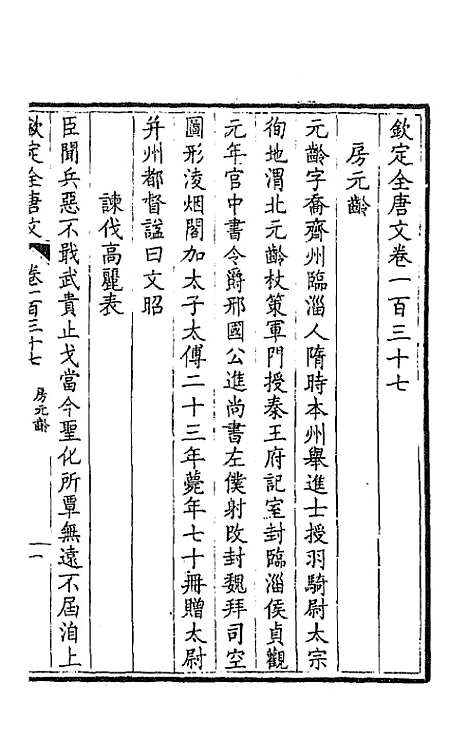 欽定全唐文卷一百三十七
房元齡
元齡字喬齊州臨淄人隋時本州舉進士授羽騎尉太宗
徇地渭北元齡杖策軍門授秦王府記室封臨淄侯貞觀
元年官中書令爵邢國公進尚書左僕射改封魏拜司空
圖形淩烟閣加太子太傅二十三年薨年七十冊贈太尉
并州都督諡曰文昭
諫伐高麗表
臣聞兵惡不戢武貴止戈當今聖化所覃無遠不屆洎上
欽定全唐文 卷一百三十七 房元齡 一